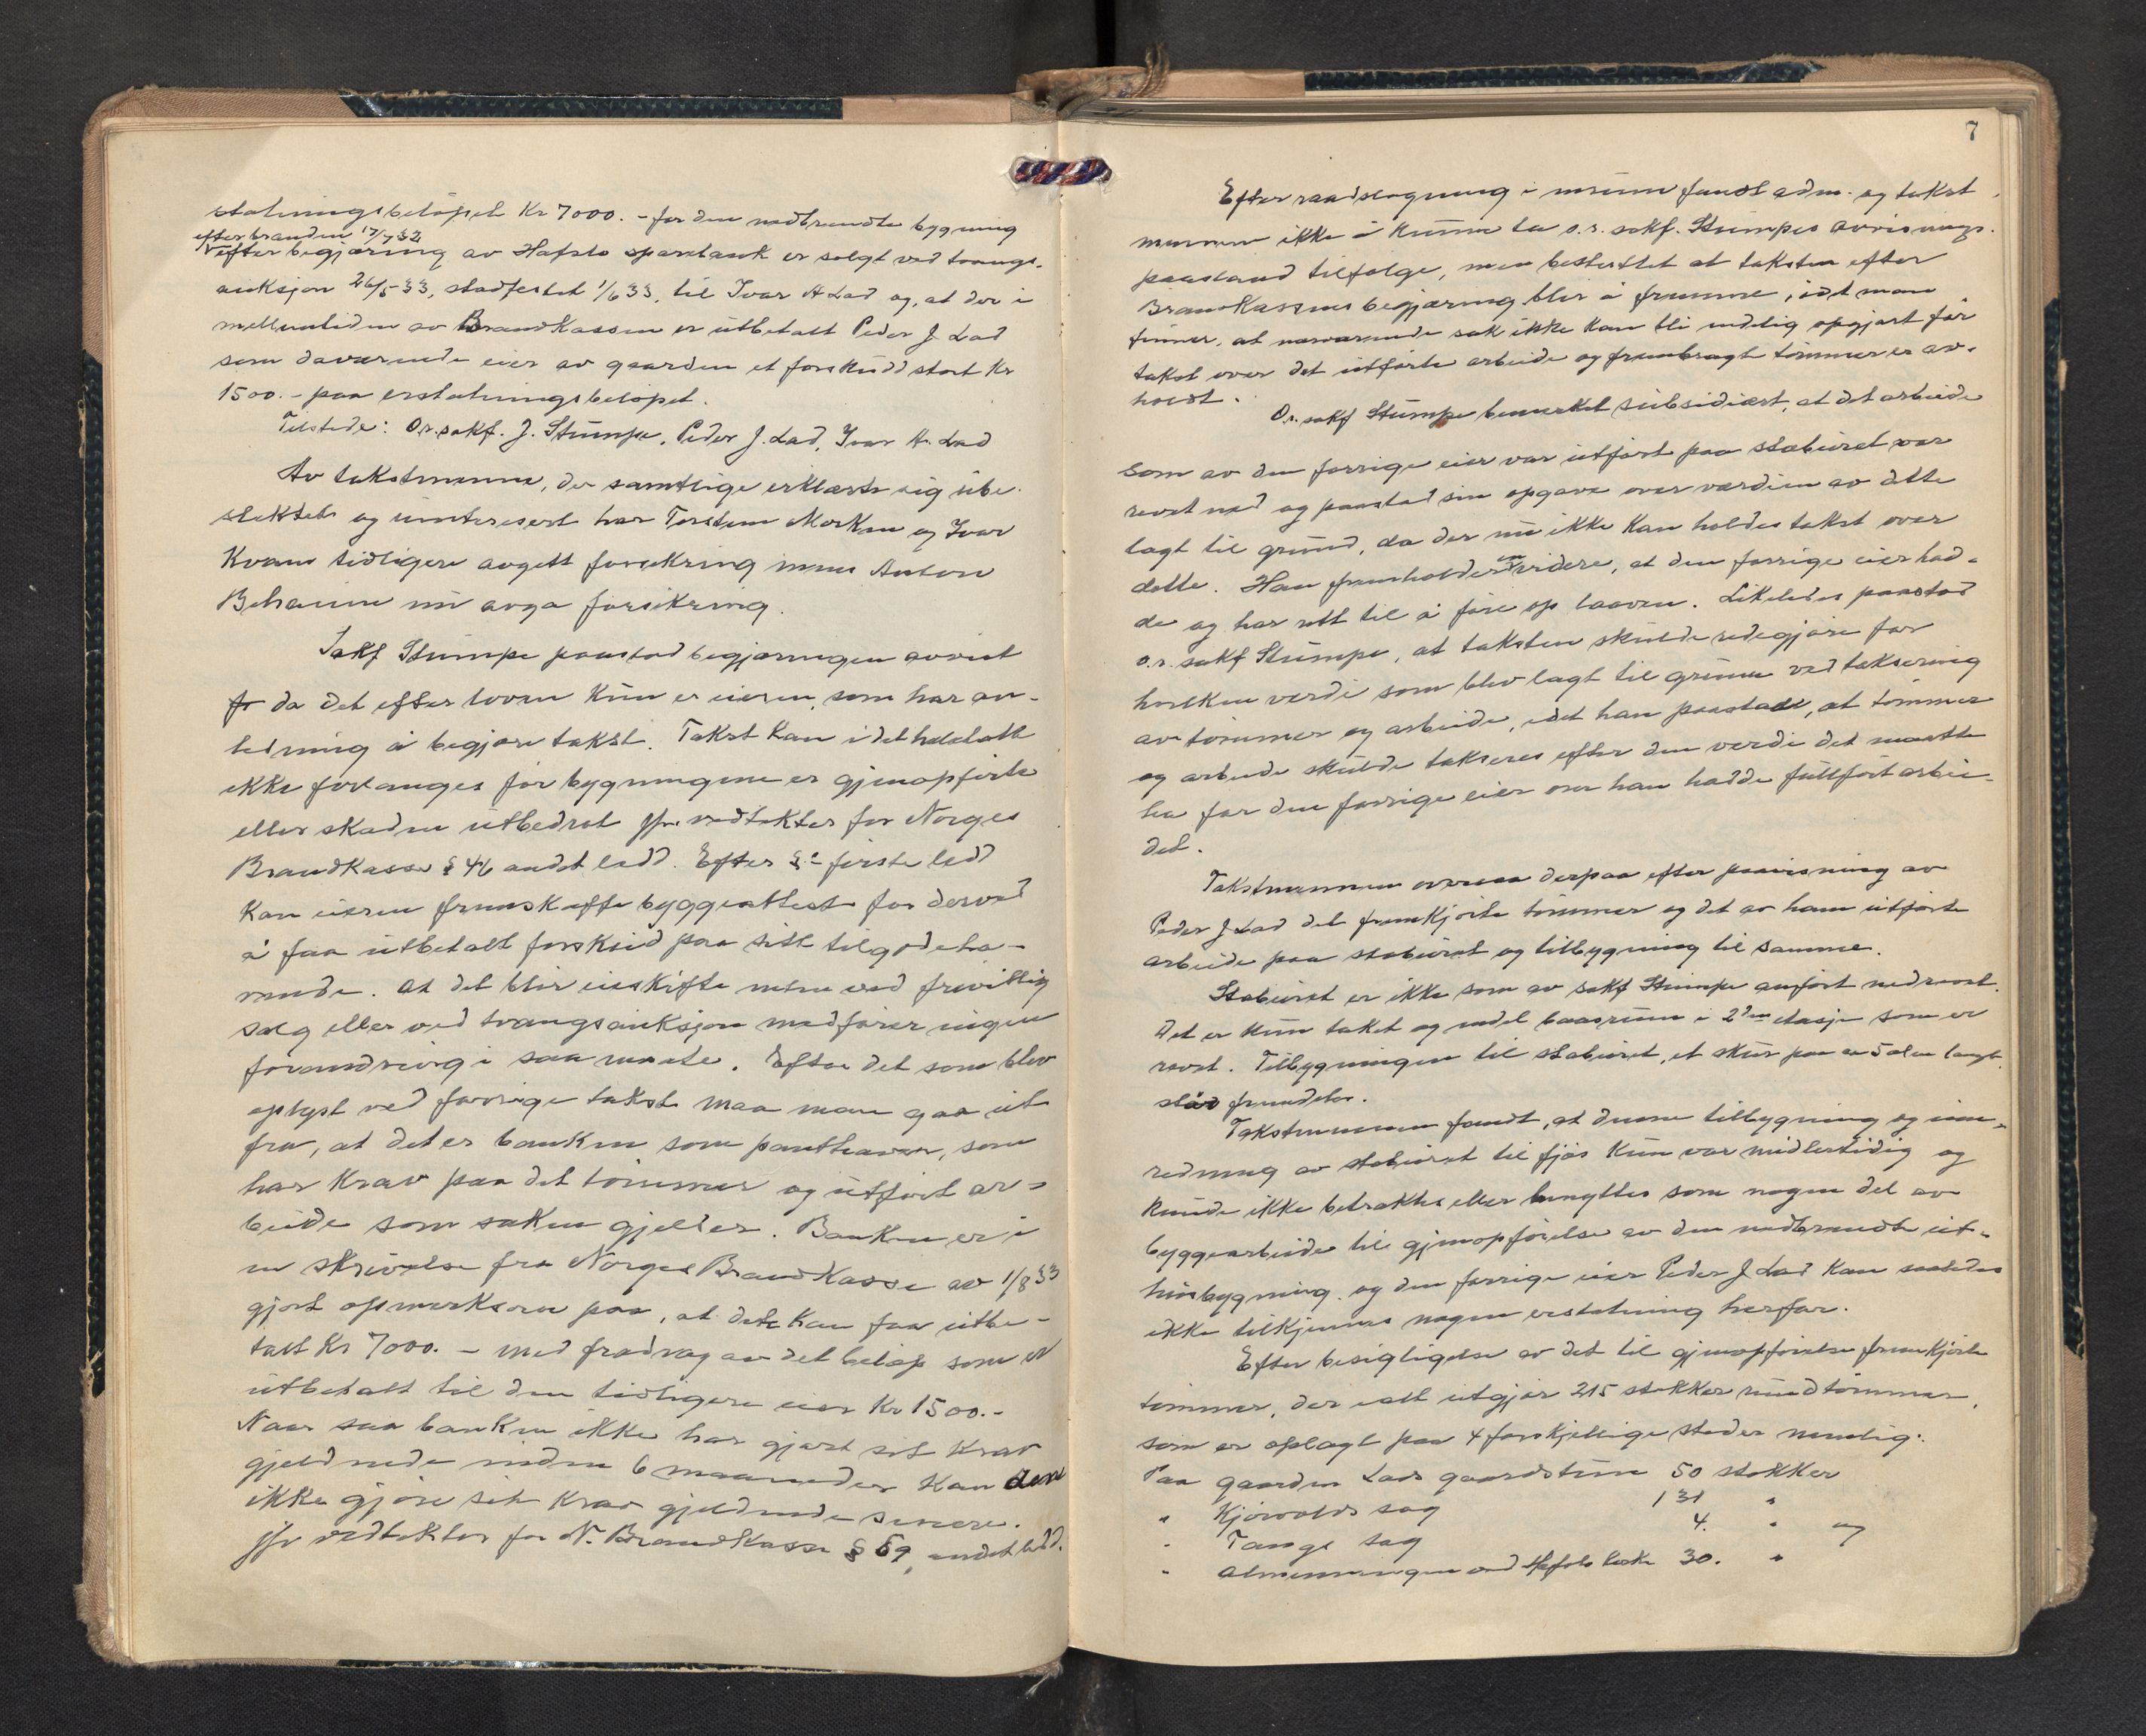 statningsbeløpet Kr 7000.- for den nedbrendte bygning
efter branden 17/7 32
efter begjæring av Hafslo sparebank er solgt ved tvangs-
auksjon 26/5 33, stadfestet 1/6 33, til Ivar H Lad og, at der i
mellemtiden av Brandkassen er utbetalt Peder J. Lad
som daværende eier av gaarden et forskudd stort Kr
1500.- paa erstatningsbeløpet.
Tilstede: O.r.sakf. J. Stumpe, Peder J. Lad, Ivar H. Lad
Av takstmennene, der samtlige erklærte sig ube-
slektet og uinteresert har Torstein Morken og Ivar
Kvam tidligere avgitt forsikring mens Anton
Beheim nu avga forsikring.
Sakf Stumpe paastod begjæringen avvist
fo da det efter loven kun er eieren, som har an-
ledning å begjære takst. Takst kan i det hele tatt
ikke forlanges før bygningene er gjenopført
eller skaden utbedret jfr. vedtekter for Norges
Brandkasse § 46 andet ledd. Efter §'s første ledd
kan eieren fremskaffe byggeattest for derved
å faa utbetalt forskud paa sitt tilgodeha-
vende. At det blir eierskifte enten ved frivillig
salg eller ved tvangsauksjon medfører ingen
forandring i saa maate. Efter det som blev
oplyst ved forrige takst maa man gaa ut
fra, at det er banken som panthaver, som
har krav paa det tømmer og utført ar-
beide som saken gjelder. Banken er i
en skrivelse fra Norges Brandkasse av 1/8 33
gjort opmerksom paa, at dete kan faa utbe-
talt Kr 7000.- med fradrag av det beløp som er
utbetalt til den tidligere eier Kr 1500.-
Naar saa banken ikke har gjort sit krav
gjeldende inden 6 maaneder kan den
ikke gjøre sit krav gjeldende senere.
Jfr vedtekter for N. Brandkasse § 59, andet ledd.
7
Efter raadslagning i enrum fandt adm. og takst
mennene ikke å kunne ta o.r. sakf. Stumpes avvisnings-
paastand tilfølge, men besluttet at taksten efter
Brandkassens begjæring blir å fremme, idet man
finner, at nærværende sak ikke kan bli endelig opgjort før
takst over det utførte arbeide og frembragt tømmer er av-
holdt.
O.r. sakf Stumpe bemerket subsidiært, at det arbeide
som av den forrige eier var utført paa stabburet var
revet ned og paastod sin opgave over værdien av dette
lagt til grund, da der nu ikke kan holdes takst over
dette. Han fremholder en videre, at den forrige eier had-
de og har rett til å føre op laaven. Likeledes paastod
o.r. sakf Stumpe, at taksten skulde redegjøre for
hvilken verdi som blev lagt til grunn ved taksering
av tømmer og arbeide, idet han paastod, at tømmer
og arbeide skulde takseres efter den verdi det maatte
ha for den forrige eier om han hadde fullført arbei-
det.
Takstmennene overså derpaa efter paavisning av
Peder J Lad det fremkjørte tømmer og det av ham utførte
arbeide paa stabburet og tilbygning til samme.
Stabburet er ikke som av sakf Stumpe anført nedrevet.
Det er kun taket og endel baasrum i 2den etasje som er
revet. Tilbygningen til stabburet, et skur paa ca 5 alen langt
står fremdeles.
Takstmennene fandt, at denne tilbygning og inn-
redning av stabburet til fjøs kun var midlertidig og
kunde ikke betraktes eller benyttes som nogen del av
byggearbeide til gjenopførelse av den nedbrendte ut-
husbygning, og den forrige eier Peder J Lad kan saaledes
ikke tilkjennes nogen erstatning herfor.
Efter besigtigelse av det til gjenopførelse fremkjørte
tømmer, der ialt utgjør 215 stokker rundtømmer,
som er oplagt paa 4 forskjellige steder nemlig:
Paa gaarden Lads gaardstun 50 stokker
" Kjørvolds sag 131 "
" Tangs sag 4. " og
" Almenningen ved Hafslo kirke 30. "